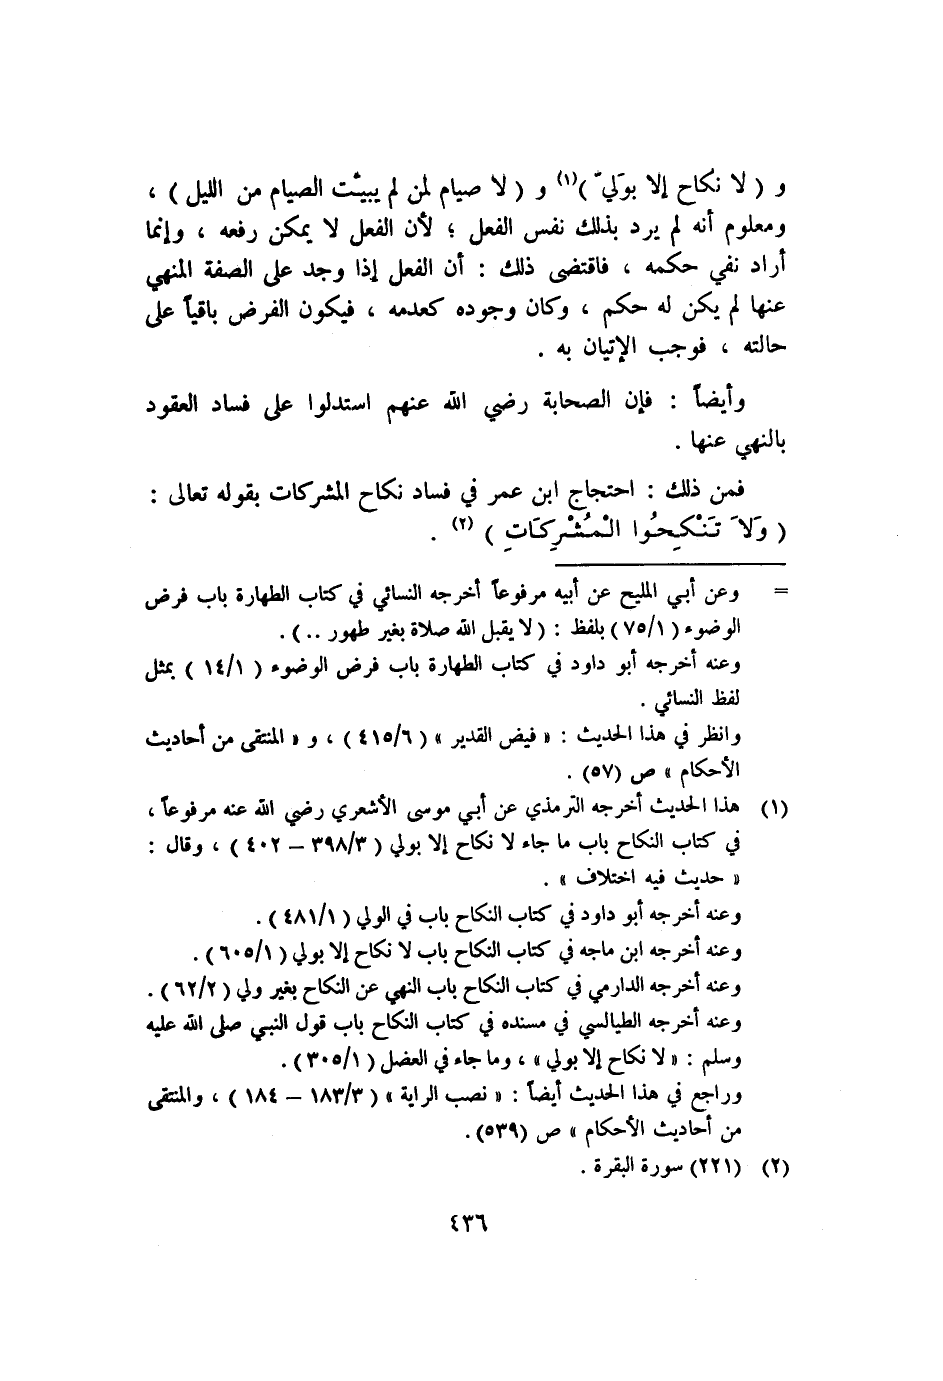 و ( لا نكاح إلا بوَليّ )(١) و ( لا صيام لمن لم يبيّت الصيام من الليل ) ،
ومعلوم أنه لم يرد بذلك نفس الفعل ؛ لأن الفعل لا يمكن رفعه ، وإنما
أراد نفي حكمه ، فاقتضى ذلك : أن الفعل إذا وجد على الصفة المنهي
عنها لم يكن له حكم ، وكان وجوده كعدمه ، فيكون الفرض باقياً على
حالته ، فوجب الإتيان به .
وأيضاً : فإن الصحابة رضي الله عنهم استدلوا على فساد العقود
بالنهي عنها .
فمن ذلك : احتجاج ابن عمر في فساد نكاح المشركات بقوله تعالى :
( وَلاَ تَنْكِحُوا الْمُشْرِكَاتِ ) (٢) .
= وعن أبي المليح عن أبيه مرفوعاً أخرجه النسائي في كتاب الطهارة باب فرض
الوضوء ( ٧٥/١ ) بلفظ : ( لا يقبل الله صلاة بغير طهور .. ) .
وعنه أخرجه أبو داود في كتاب الطهارة باب فرض الوضوء ( ١٤/١ ) بمثل
لفظ النسائي .
وانظر في هذا الحديث : « فيض القدير » ( ٤١٥/٦ ) ، و « المنتقى من أحاديث
الأحكام » ص (٥٧) .
(١) هذا الحديث أخرجه الترمذي عن أبي موسى الأشعري رضي الله عنه مرفوعاً ،
في كتاب النكاح باب ما جاء لا نكاح إلا بولي ( ٣٩٨/٣ – ٤٠٢ ) ، وقال :
« حديث فيه اختلاف » .
وعنه أخرجه أبو داود في كتاب النكاح باب في الولي ( ٤٨١/١ ) .
وعنه أخرجه ابن ماجه في كتاب النكاح باب لا نكاح إلا بولي ( ٦٠٥/١ ) .
وعنه أخرجه الدارمي في كتاب النكاح باب النهي عن النكاح بغير ولي ( ٦٢/٢ ) .
وعنه أخرجه الطيالسي في مسنده في كتاب النكاح باب قول النبي صلى الله عليه
وسلم : « لا نكاح إلا بولي » ، وما جاء في العضل ( ٣٠٥/١ ) .
وراجع في هذا الحديث أيضاً : « نصب الراية » ( ١٨٣/٣ – ١٨٤ ) ، والمنتقى
من أحاديث الأحكام » ص (٥٣٩) .
(٢) (٢٢١) سورة البقرة .
٤٣٦